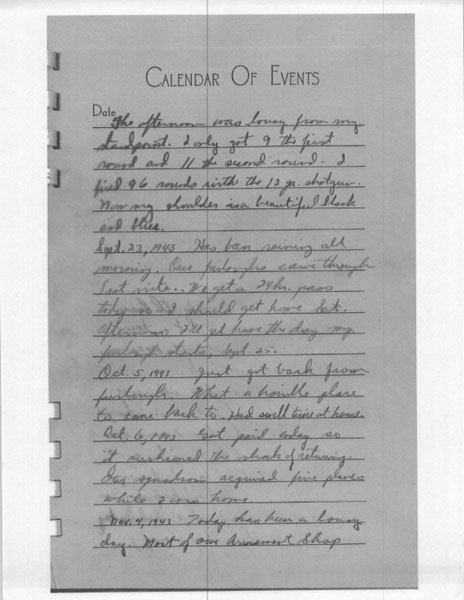 CALENDAR OF EVENTS
Date
The afternoon was lousy from my
standpoint. I only got 9 the first
round and 11 the second round. I
fired 96 rounds with the 12 ga. shotgun.
Now my shoulder is a beautiful black
and blue.
Sept. 23, 1943 Has been raining all
morning. Our furloughs came through
last nite. We get a 24 hr. pass
today so I should get home Sat.
afternoon. I'll get home the day my
furlough starts, Sept. 25.
Oct. 5, 1943 Just got back from
furlough. What a horrible place
to come back to. Had swell time at home.
Oct. 6, 1943 Got paid today so
it cushioned the shock of returning.
Our squadron acquired five planes
while I was home.
Nov. 4, 1943 Today has been a lousy
day. Most of our Armament Shop